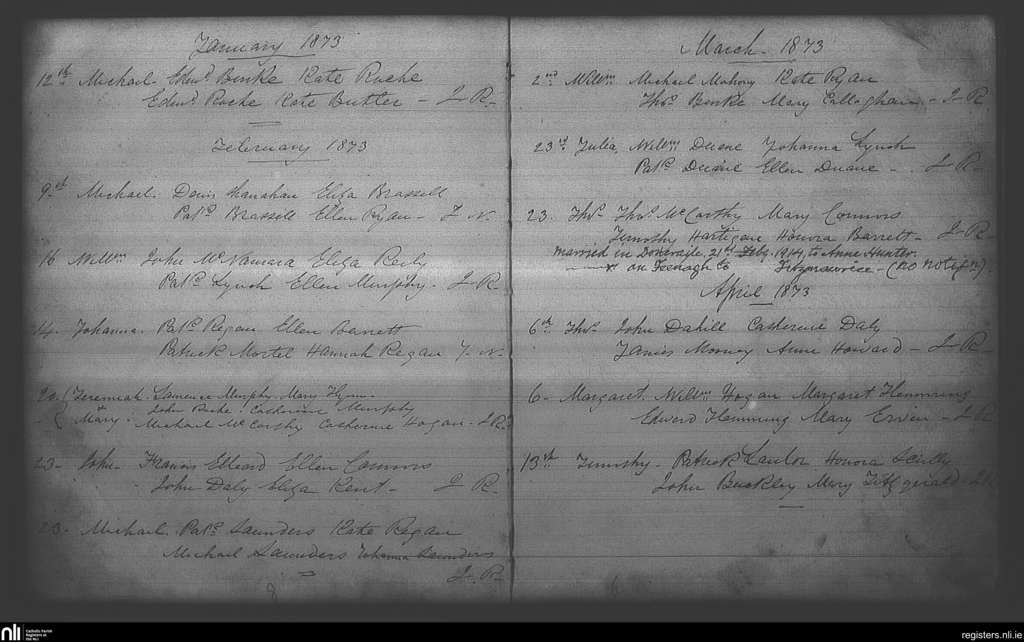 January 1873
12th Michael. Edwd Burke Kate Roche
Edwd Roche Kate Butler - J R-
February 1873
9th Michael. Denis Shanahan Eliza Brassell
Patk Brassell Ellen Ryan - J N-
16 Willm John McNamara Eliza
Patk Lynch Ellen Murphy. J R
14. Johanna. Patk Regan Ellen Barrett
Patrick Mortel Hannah Regan J. N-
20. Jeremiah. Lawrence Murphy. Mary Flynn
& John Catherine Murphy
Mary. Michael McCarthy Catherine Hogan - J R
23- John- Francis Elleard Ellen Connors
John Daly Eliza Kent - J R-
23- Michael. Patk Saunders Kate Regan
Michael Saunders Johanna Saunders
J. R-
March 1873
2nd Willm Michael Mahony Kate Ryan
Thos Burke Mary Callaghan - J R
23rd Julia. Willm Duane Johanna Lynch
Patk Duane Ellen Duane - J R-
23. Thos. Thos McCarthy Mary Connors
Timothy Hartigan Honora Barrett - J R-
married in Doneraile, 21st Feb. 1914, to Anne Hunter.
x on Feenagh Co Fitzmaurice - (no notif'n).
April 1873
6th Thos. John Dahill Catherine Daly
James Mooney Anne Howard - J R-
6- Margaret. Willm Hogan Margaret Flemming
Edward Flemming Mary - J R
13th Timothy. Patrick Lawlor Honora Scully
John Buckley Mary Fitzgerald - J R
nli Catholic Parish Registers at the NLI
registers.nli.ie